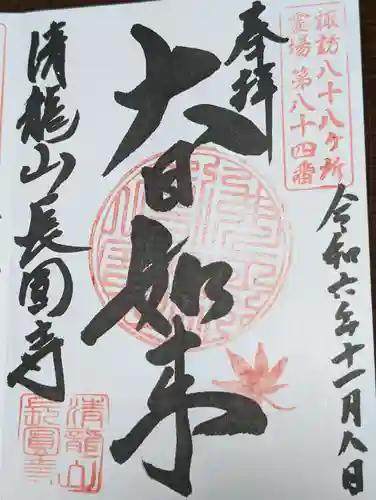 諏訪八十八ケ所
霊場第八十四番
奉拝
令和六年十一月八日
大日如来
清龍山長圓寺
清龍山
長圓寺